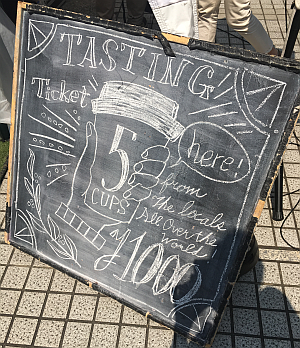 TASTING
Ticket
here!
5
CUPS
from
the locals
All Over the
World
¥1000